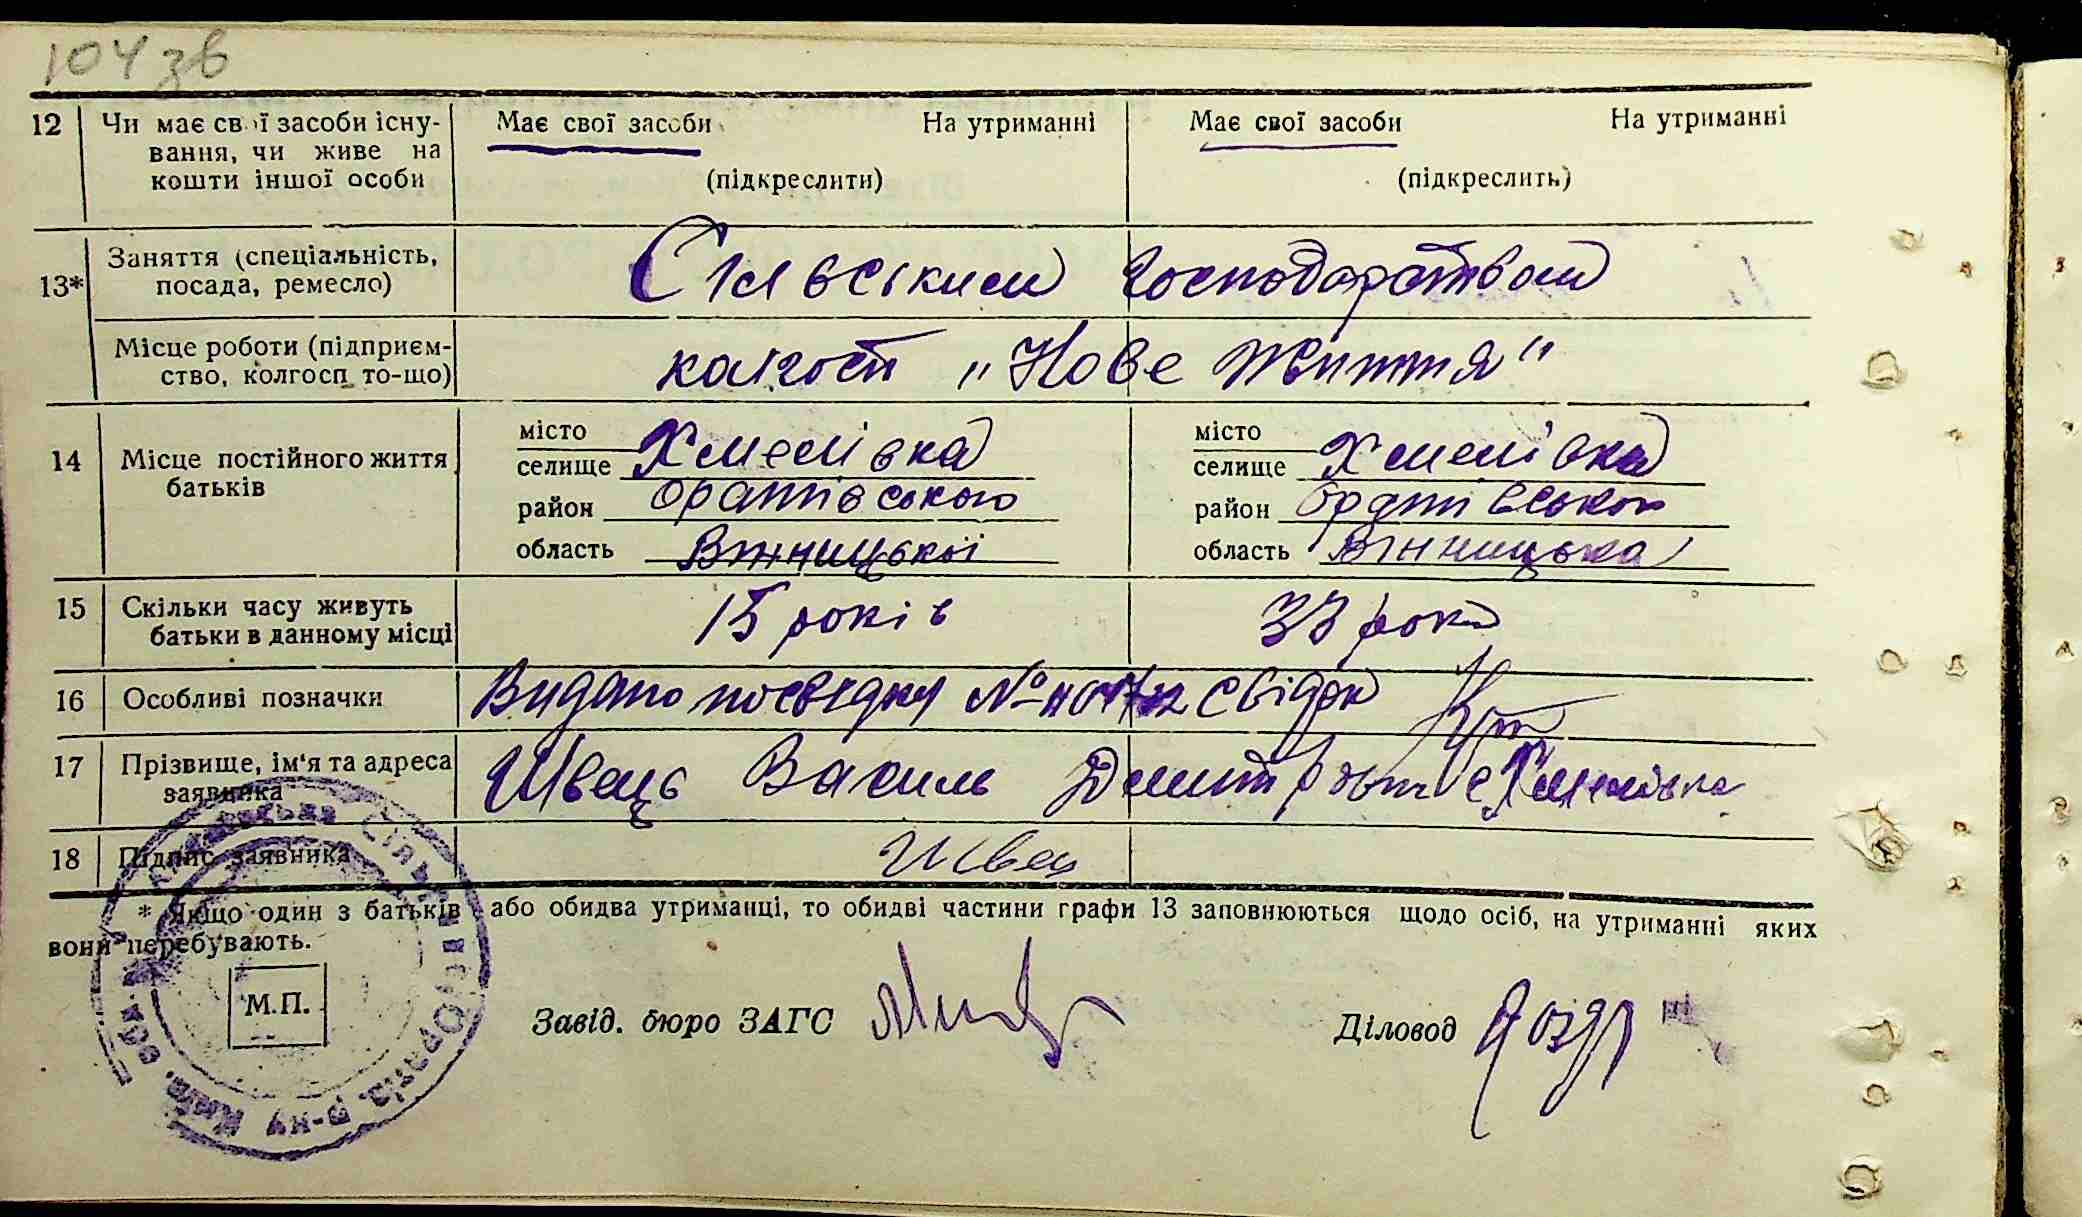 104 зв
12 Чи має свої засоби існу-
вання, чи живе на
кошти іншої особи
Має свої засоби На утриманні
(підкреслити)
Має свої засоби На утриманні
(підкреслить)
13* Заняття (спеціальність,
посада, ремесло)
Сільським господарством
Місце роботи (підприєм-
ство, колгосп то-що)
колгосп „Нове життя"
14 Місце постійного життя
батьків
місто
селище Хмелівка
район Оратівського
область Вінницької
місто
селище Хмелівка
район Оратівського
область Вінницька
15 Скільки часу живуть
батьки в данному місці
15 років
33 роки
16 Особливі позначки
Видано посвідку № свідок
17 Прізвище, ім'я та адреса
заявника
Швець Василь Дмитрович с Хмелівка
18 Підпис заявника
Швец
* Якщо один з батьків або обидва утриманці, то обидві частини графи 13 заповнюються щодо осіб, на утриманні яких
вони перебувають.
М.П.
Завід. бюро ЗАГС
Діловод
Сільськ Оратів. р-ну Київ.